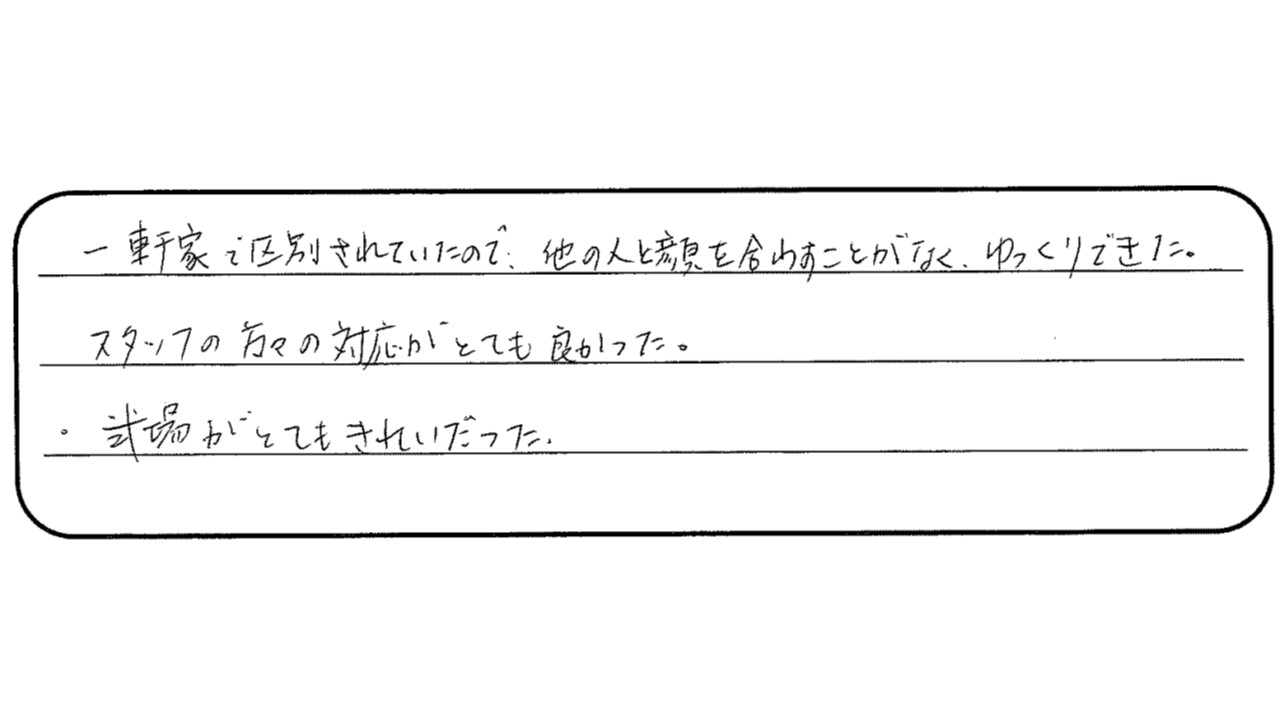 一軒家で区別されていたので、他の人と顔を合わすことがなく、ゆっくりできた。
スタッフの方々の対応がとても良かった。
・式場がとてもきれいだった。